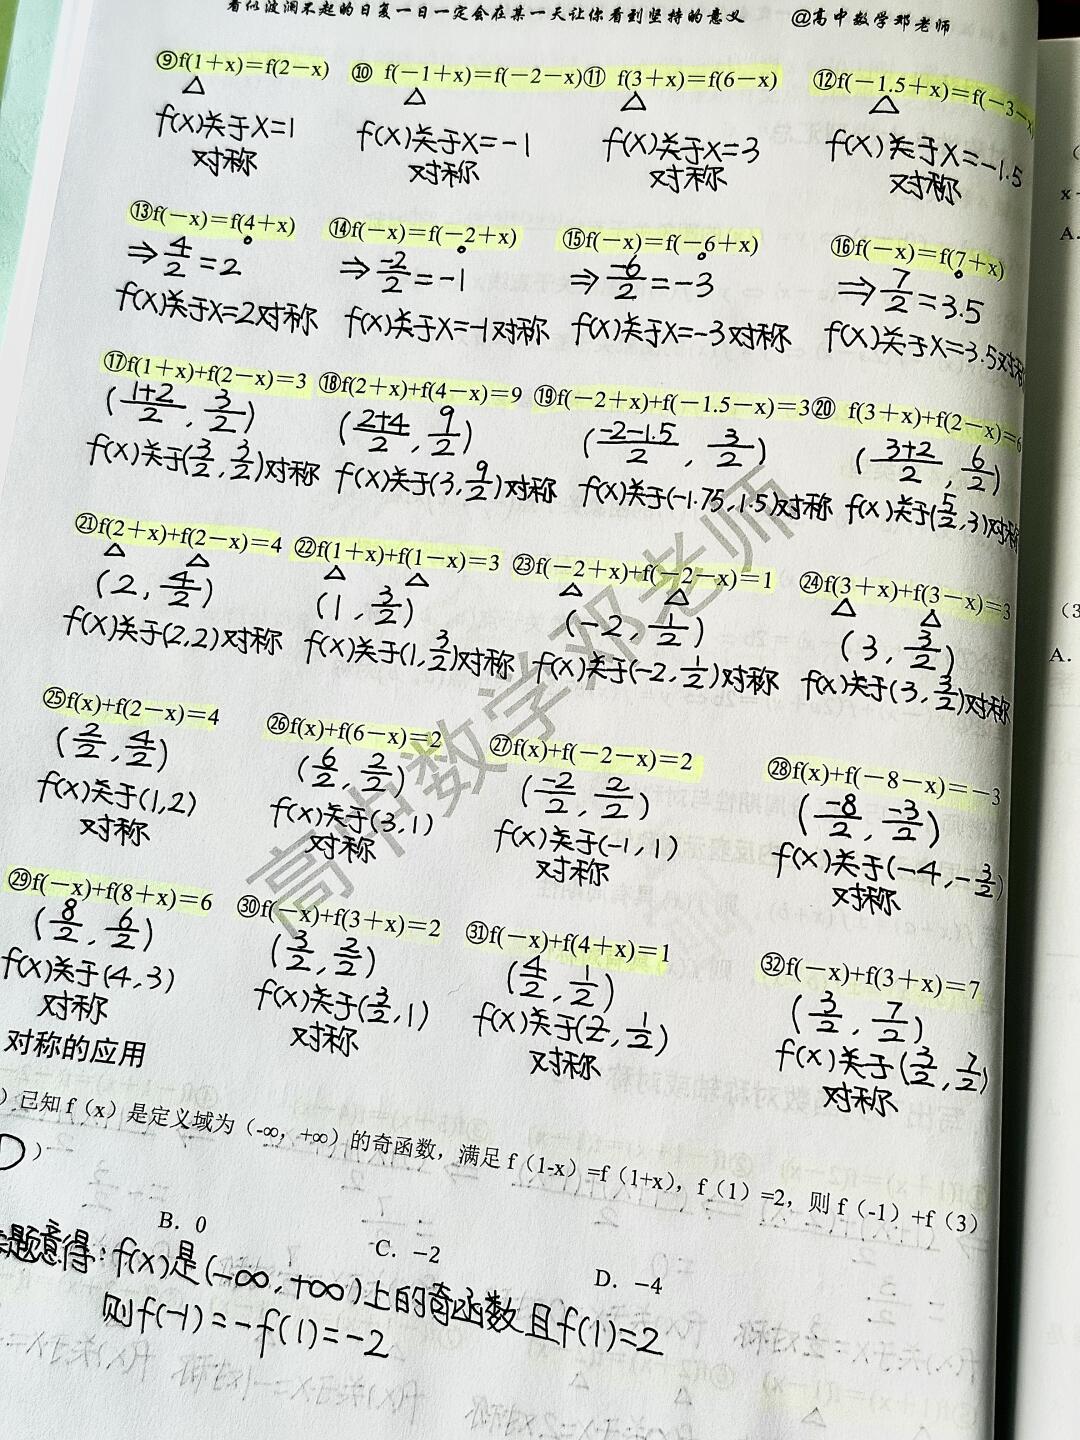 看似波澜不起的日复一日一定会在某一天让你看到坚持的意义 @高中数学邓老师
⑨f(1+x)=f(2-x) ⑩ f(-1+x)=f(-2-x) ⑪ f(3+x)=f(6-x) ⑫f(-1.5+x)=f(-3-x
f(x)关于X=1 f(x)关于X=-1 f(x)关于X=3 f(x)关于X=-1.5
对称 对称 对称 对称
⑬f(-x)=f(4+x) ⑭f(-x)=f(-2+x) ⑮f(-x)=f(-6+x) ⑯f(-x)=f(7+x)
⇒4/2=2 ⇒-2/2=-1 ⇒-6/2=-3 ⇒7/2=3.5
f(x)关于X=2对称 f(x)关于X=-1对称 f(x)关于X=-3对称 f(x)关于X=3.5对称
⑰f(1+x)+f(2-x)=3 ⑱f(2+x)+f(4-x)=9 ⑲f(-2+x)+f(-1.5-x)=3 ⑳ f(3+x)+f(2-x)=6
(1+2/2, 3/2) (2+4/2, 9/2) (-2-1.5/2, 3/2) (3+2/2, 6/2)
f(x)关于(3/2, 3/2)对称 f(x)关于(3, 9/2)对称 f(x)关于(-1.75, 1.5)对称 f(x)关于(5/2, 3)对称
㉑f(2+x)+f(2-x)=4 ㉒f(1+x)+f(1-x)=3 ㉓f(-2+x)+f(-2-x)=1 ㉔f(3+x)+f(3-x)=3
(2, 4/2) (1, 3/2) (-2, 1/2) (3, 3/2)
f(x)关于(2,2)对称 f(x)关于(1, 3/2)对称 f(x)关于(-2, 1/2)对称 f(x)关于(3, 3/2)对称
㉕f(x)+f(2-x)=4 ㉖f(x)+f(6-x)=2 ㉗f(x)+f(-2-x)=2 ㉘f(x)+f(-8-x)=-3
(2/2, 4/2) (6/2, 2/2) (-2/2, 2/2) (-8/2, -3/2)
f(x)关于(1,2) f(x)关于(3,1) f(x)关于(-1,1) f(x)关于(-4,-3/2)
对称 对称 对称 对称
㉙f(-x)+f(8+x)=6 ㉚f(-x)+f(3+x)=2 ㉛f(-x)+f(4+x)=1 ㉜f(-x)+f(3+x)=7
(8/2, 6/2) (3/2, 2/2) (4/2, 1/2) (3/2, 7/2)
f(x)关于(4,3) f(x)关于(3/2,1) f(x)关于(2, 1/2) f(x)关于(3/2, 7/2)
对称 对称 对称 对称
对称的应用
)已知f(x)是定义域为(-∞,+∞)的奇函数,满足f(1-x)=f(1+x),f(1)=2,则f(-1)+f(3)
D)
B. 0 C. -2 D. -4
题意得:f(x)是(-∞,+∞)上的奇函数且f(1)=2
则f(-1)=-f(1)=-2
高中数学邓老师